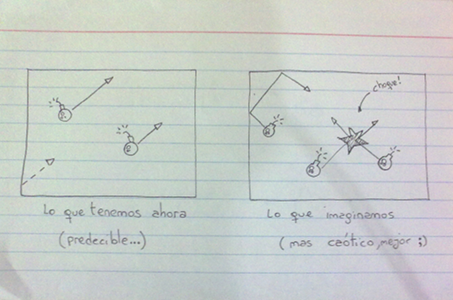 choque!
Lo que tenemos ahora
(predecible...)
Lo que imaginamos
(mas caótico, mejor ;)